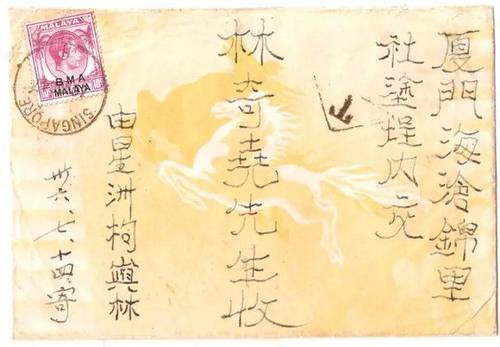 厦門海滄錦里
社塗埕內交
林奇尭先生收
由星洲林
卅六、七、十四寄
MALAYA
BMA
MALAYA
SINGAPORE